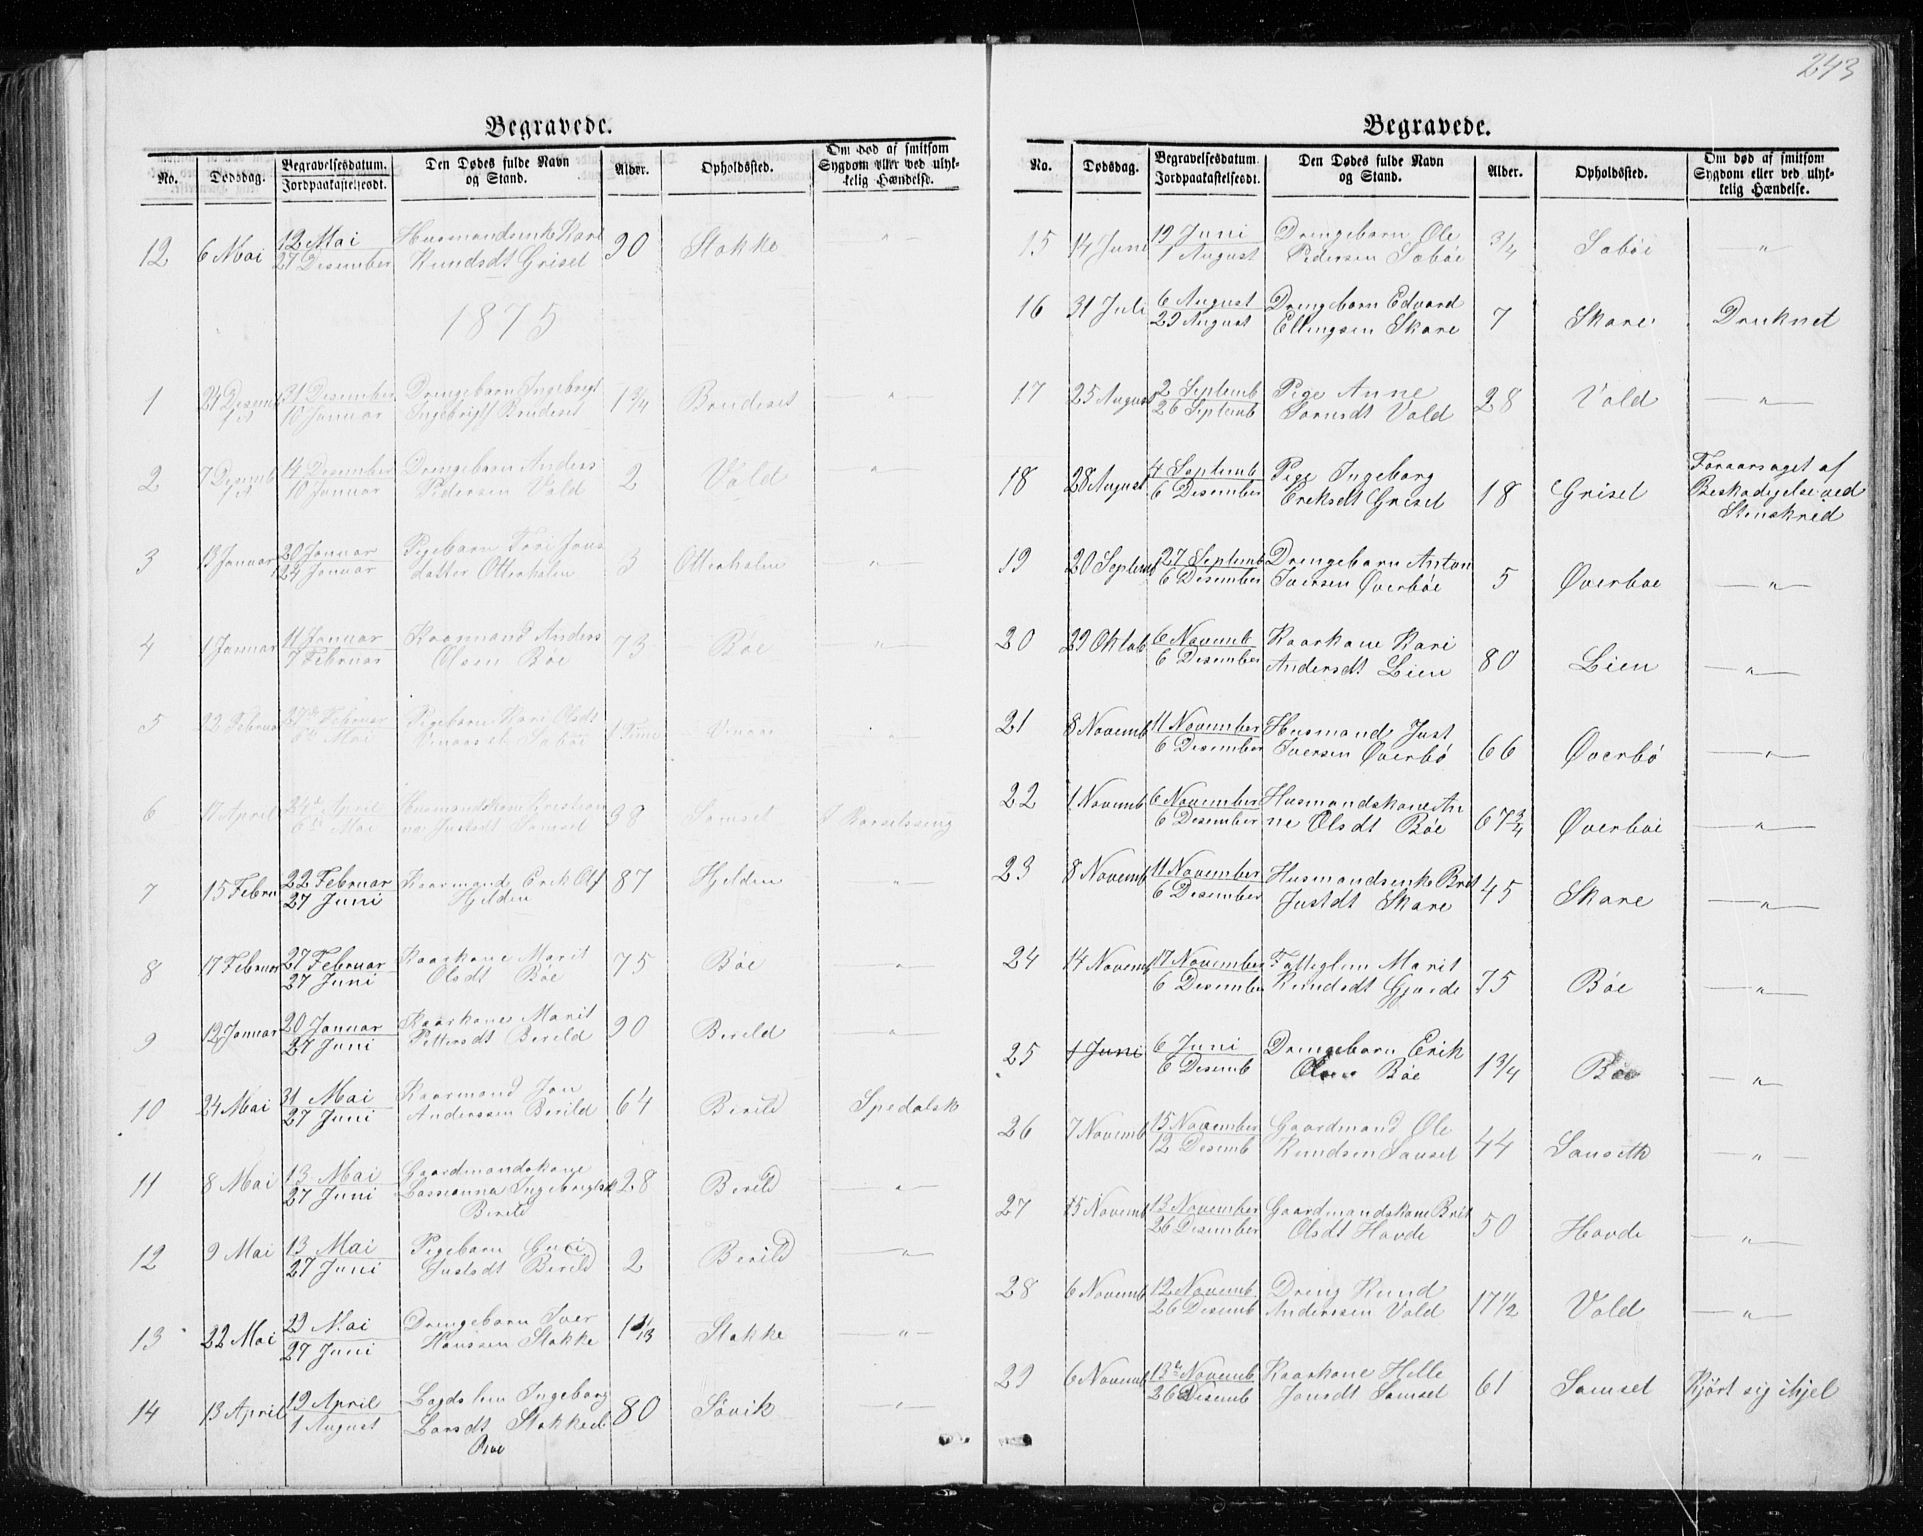 243
Begravede.
No. Dødsdag. Begravelsesdatum. Jordpaakastelsesdt. Den Dødes fulde Navn og Stand. Alder. Opholdssted. Om død af smitsom Sygdom eller ved ulykkelig Hændelse.
12 6 Mai 12 Mai Husmandsenke Kari 90 Stokke "
27 Desember Knudsdt Griset
1875
1 24 Desemb 31 Desember Drengebarn Ingebrigt 1 3/4 Brudeset "
10 Januar Ingebrigts Brudeset
2 7 Desemb 14 Desember Drengebarn Anders 2 Vold "
10 Januar Pedersen Vold
3 13 Januar 20 Januar Pigebarn Jons 3 Otterholm "
24 Januar datter Otterholm
4 1 Januar 11 Januar Kaarmand Anders 73 Bøe "
7 Februar Olsen Bøe
5 22 Februar 27de Februar Pigebarn Kari Olsdt 1 Time "
6te Mai Sæbøe
6 17 April 24de April Husmandskone Kristian 39 Samset Barselsseng
6te Mai na Justsdt Samset
7 15 Febru 22 Februar Kaarmand Erik Ols 87 Hjelden "
27 Juni Hjelden
8 17 Februar 27 Februar Kaarkone Marit 75 Bøe "
27 Juni Olsdt Bøe
9 12 Januar 20 Januar Kaarkone Marit 90 Berild "
27 Juni Pettersdt Berild
10 24 Mai 31 Mai Kaarmand Jon 64 Berild Spedalsk
27 Juni Anderssen Berild
11 8 Mai 13 Mai Gaardmandskone 28 Berild "
27 Juni Ingebrigtsdt
Berild
12 9 Mai 13 Mai Pigebarn Guri 2 Berild "
27 Juni Justsdt Berild
13 22 Mai 29 Mai Drengebarn Iver Stokke "
27 Juni Hanssen Stokke
14 13 April 19 April Legdslem Ingeborg 80 Søvik "
1 August Larsdt Stokke
Begravede.
No. Dødsdag. Begravelsesdatum Jordpaakastelsesdt. Den Dødes fulde Navn og Stand. Alder. Opholdsted. Om død af smitsom Sygdom eller ved ulykkelig Hændelse.
15 14 Juni 19 Juni Drengebarn Ole 3/4 Sæbøe "
1 August Pedersen Sæbøe
16 31 Juli 6 August Drengebarn Edvard 7 Skare Druknet
29 August Ellingsen Skare
17 25 August 2 Septemb Pige Anne 28 Vold "
26 Septemb Vold
18 28 August 4 Septemb Pige Ingeborg 18 Griset Foraarsaget af
6 Desember Eriksdt Griset Beskadigelse ved
Stenskred
19 20 Septemb 27 Septemb Drengebarn Anton 5 Øverbøe "
6 Desember Iversen Øverbøe
20 29 Oktob 6 Novemb Kaarkone Kari 80 Lien "
6 Desember Andersdt Lien
21 8 Novemb 11 November Husmand Just 66 Øverbø "
6 Desember Iversen Øverbø
22 1 Novemb 6 November Husmandskone An 67 3/4 Øverbøe "
6 Desember ne Olsdt Bøe
23 8 Novemb 11 November Husmandsenke Brit 45 Skare "
6 Desember Justdt Skare
24 14 Novemb 17 November Fattiglem Marit 75 Bøe "
6 Desember Knudsdt Gjærde
25 1 Juni 6 Juni Drengebarn Erik 1 3/4 Bøe "
6 Desemb Olsen Bøe
26 7 Novemb 15 November Gaardmand Ole 44 Samseth "
12 Desemb Knudsen Samset
27 15 Novemb 13 November Gaardmandskone Brit 50 Hovde "
26 Desember Olsdt Hovde
28 6 Novemb 12 Novemb Dreng Knud 17 1/2 Vold "
26 Desemb Anderssen Vold
29 6 Novemb 13de Novemb Kaarkone Helle 61 Samset Kjørt sig ihjel
26 Desemb Jonsdt Samset